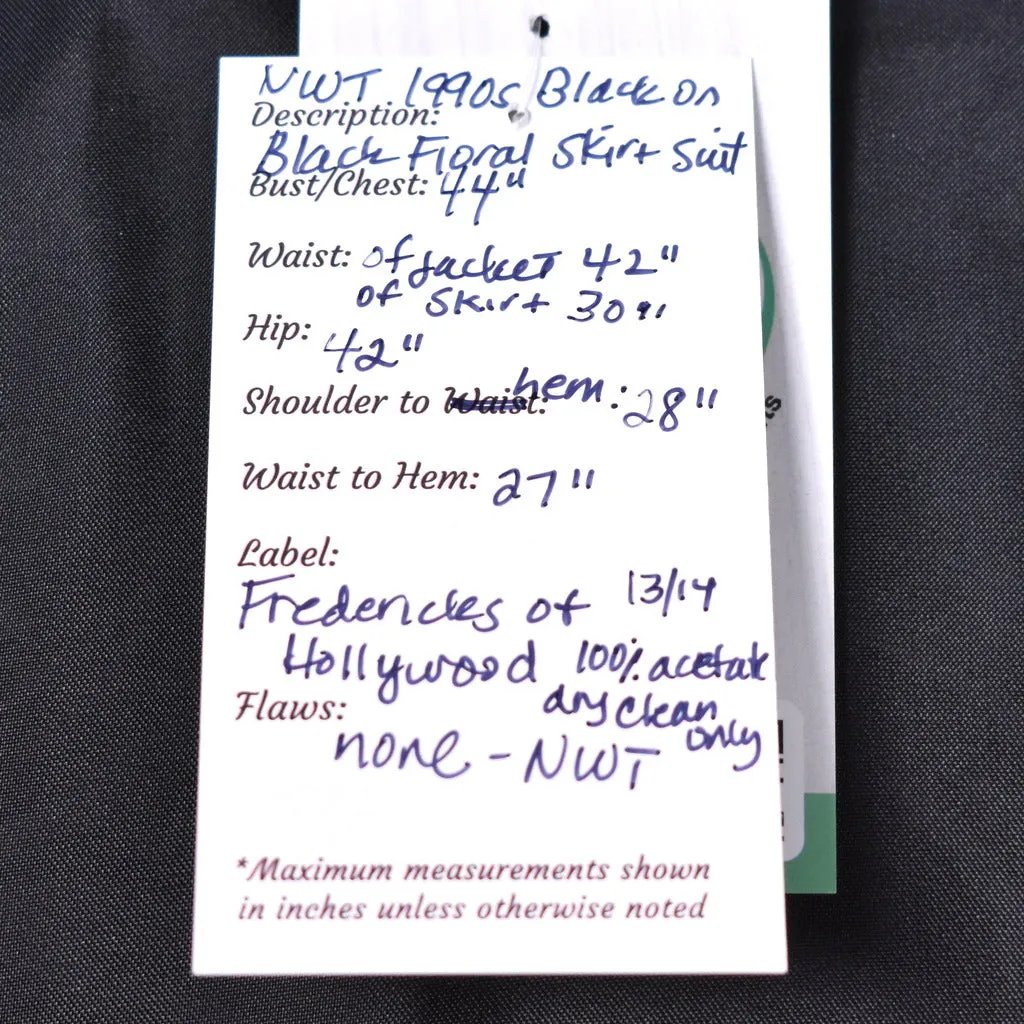 NWT 1990s Black on
Description:
Black Floral Skirt Suit
Bust/Chest: 44"
Waist: of Jacket 42"
of Skirt 30"
Hip: 42"
Shoulder to Waist: hem: 28"
Waist to Hem: 27"
Label:
Fredericks of 13/14
Hollywood 100% acetate
Flaws: dry clean only
none - NWT
*Maximum measurements shown
in inches unless otherwise noted